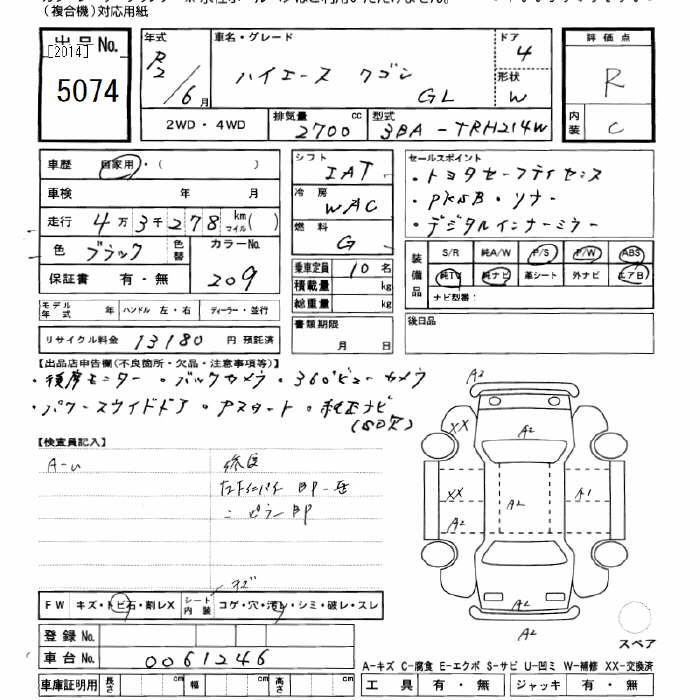 (複合機)対応用紙
出品No.
[2014]
5074
年式
R2/6月
車名・グレード
ハイエース ワゴン
GL
ドア
4
形状
W
2WD・4WD
排気量
2700 cc
型式
3BA-TRH214W
評価点
R
内装
C
車歴 自家用・( )
車検 年 月
走行 4万3千278 km マイル( )
色 ブラック 色替
カラーNo.
209
保証書 有・無
シフト
IAT
冷房
WAC
燃料
G
乗車定員 10名
積載量 kg
総重量 kg
書類期限
月 日
セールスポイント
・トヨタセーフティセンス
・PKSB・ソナー
・デジタルインナーミラー
装備品
S/R 純A/W P/S P/W ABS
純TV 純ナビ 革シート 外ナビ エアB
ナビ型番:
後日品
モデル年式 年 ハンドル 左・右 ディーラー・並行
リサイクル料金 13180 円 預託済
【出品店申告欄(不良箇所・欠品・注意事項等)】
・後席モニター・バックカメラ・360°ビューカメラ
・パワースライドドア・Pスタート・純正ナビ
(SD欠)
【検査員記入】
A-U
修復
BP
ピラーBP
FW キズ・トビ石・割レX シート内装 コゲ・穴・汚レ・シミ・破レ・スレ
登録No.
車台No. 0061246
車庫証明用 長さ cm 幅 cm 高さ cm
A2
XX
A2
XX
A2
A2
A1
A2
A2
スペア
A-キズ C-腐食 E-エクボ S-サビ U-凹ミ W-補修 XX-交換済
工具 有・無 ジャッキ 有・無